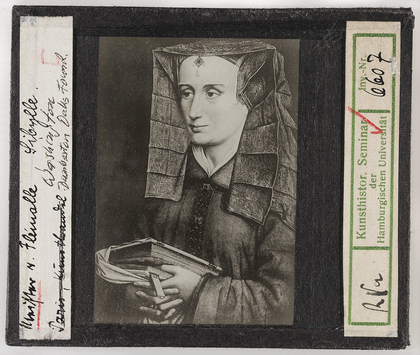 Meister v. Flémalle. Sibylle.
Washington
Dumbarton Oaks Found.
Paris, Kunsthandel
Kunsthistor. Seminar
der
Hamburgischen Universität
Inv.-Nr.
6607